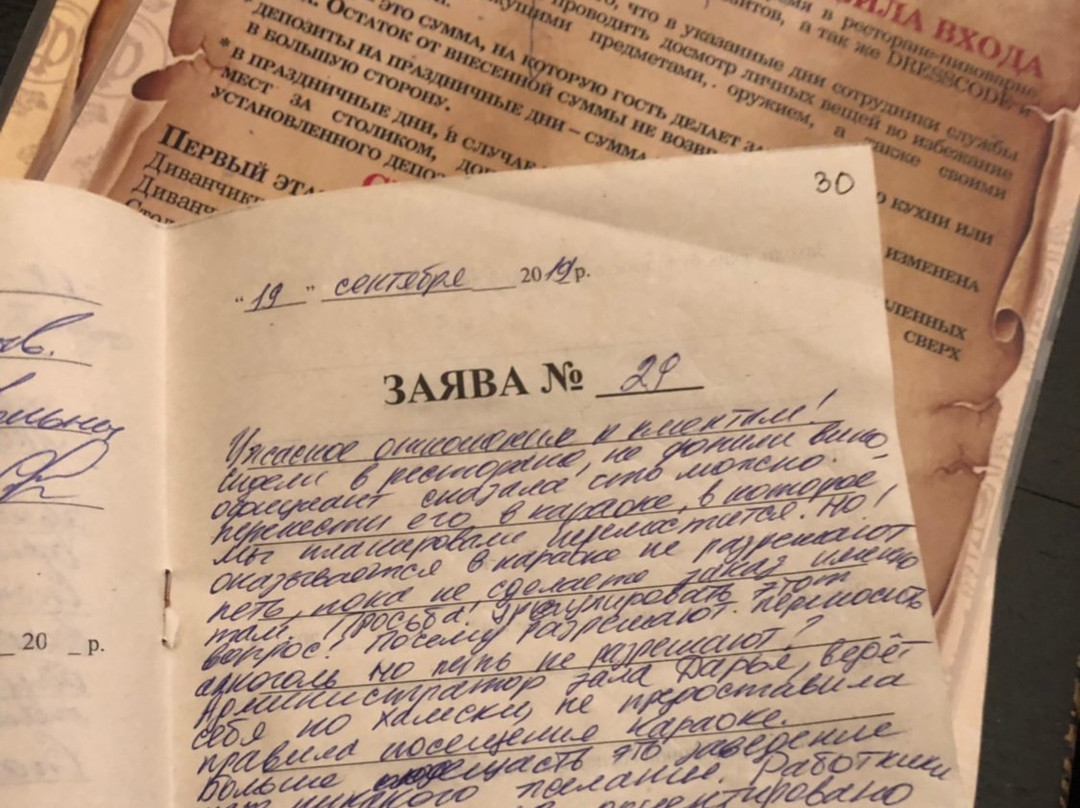 ВИЛА ВХОДА
время в ресторане-пивоварне
зитов, а так же DRESSCODE и
что в указанные дни сотрудники службы
проводить досмотр личных вещей во избежание
жущими предметами, оружием, а также своими
это сумма, на которую гость делает за
Остаток от внесенной суммы не возвр
депозиты на праздничные дни – сумма
в большую сторону.
* в праздничные дни, в случае
мест за столиком, дог
установленного депоз
о кухни или
изменена
ленных
сверх
Первый этаж
Диванчики
Диванч
Стол
30
"19" сентября 2019 р.
ЗАЯВА № 29
Ужасное отношение к клиентам!
Сидели в ресторане, не допили вино
официант сказала что можно
перенести его в караоке, в которое
мы планировали переместится. Но!
оказывается в караоке не разрешают
петь, пока не сделаете заказ именно
там. Просьба! Урегулировать этот
вопрос! Почему разрешают переносить
алкоголь но петь не разрешают?
Администратор зала Дарья, ведёт
себя по хамски, не предоставила
правила посещения караоке.
Больше посещасть это заведение
нет никакого желания. Работники
ориентировано
ов.
20 р.